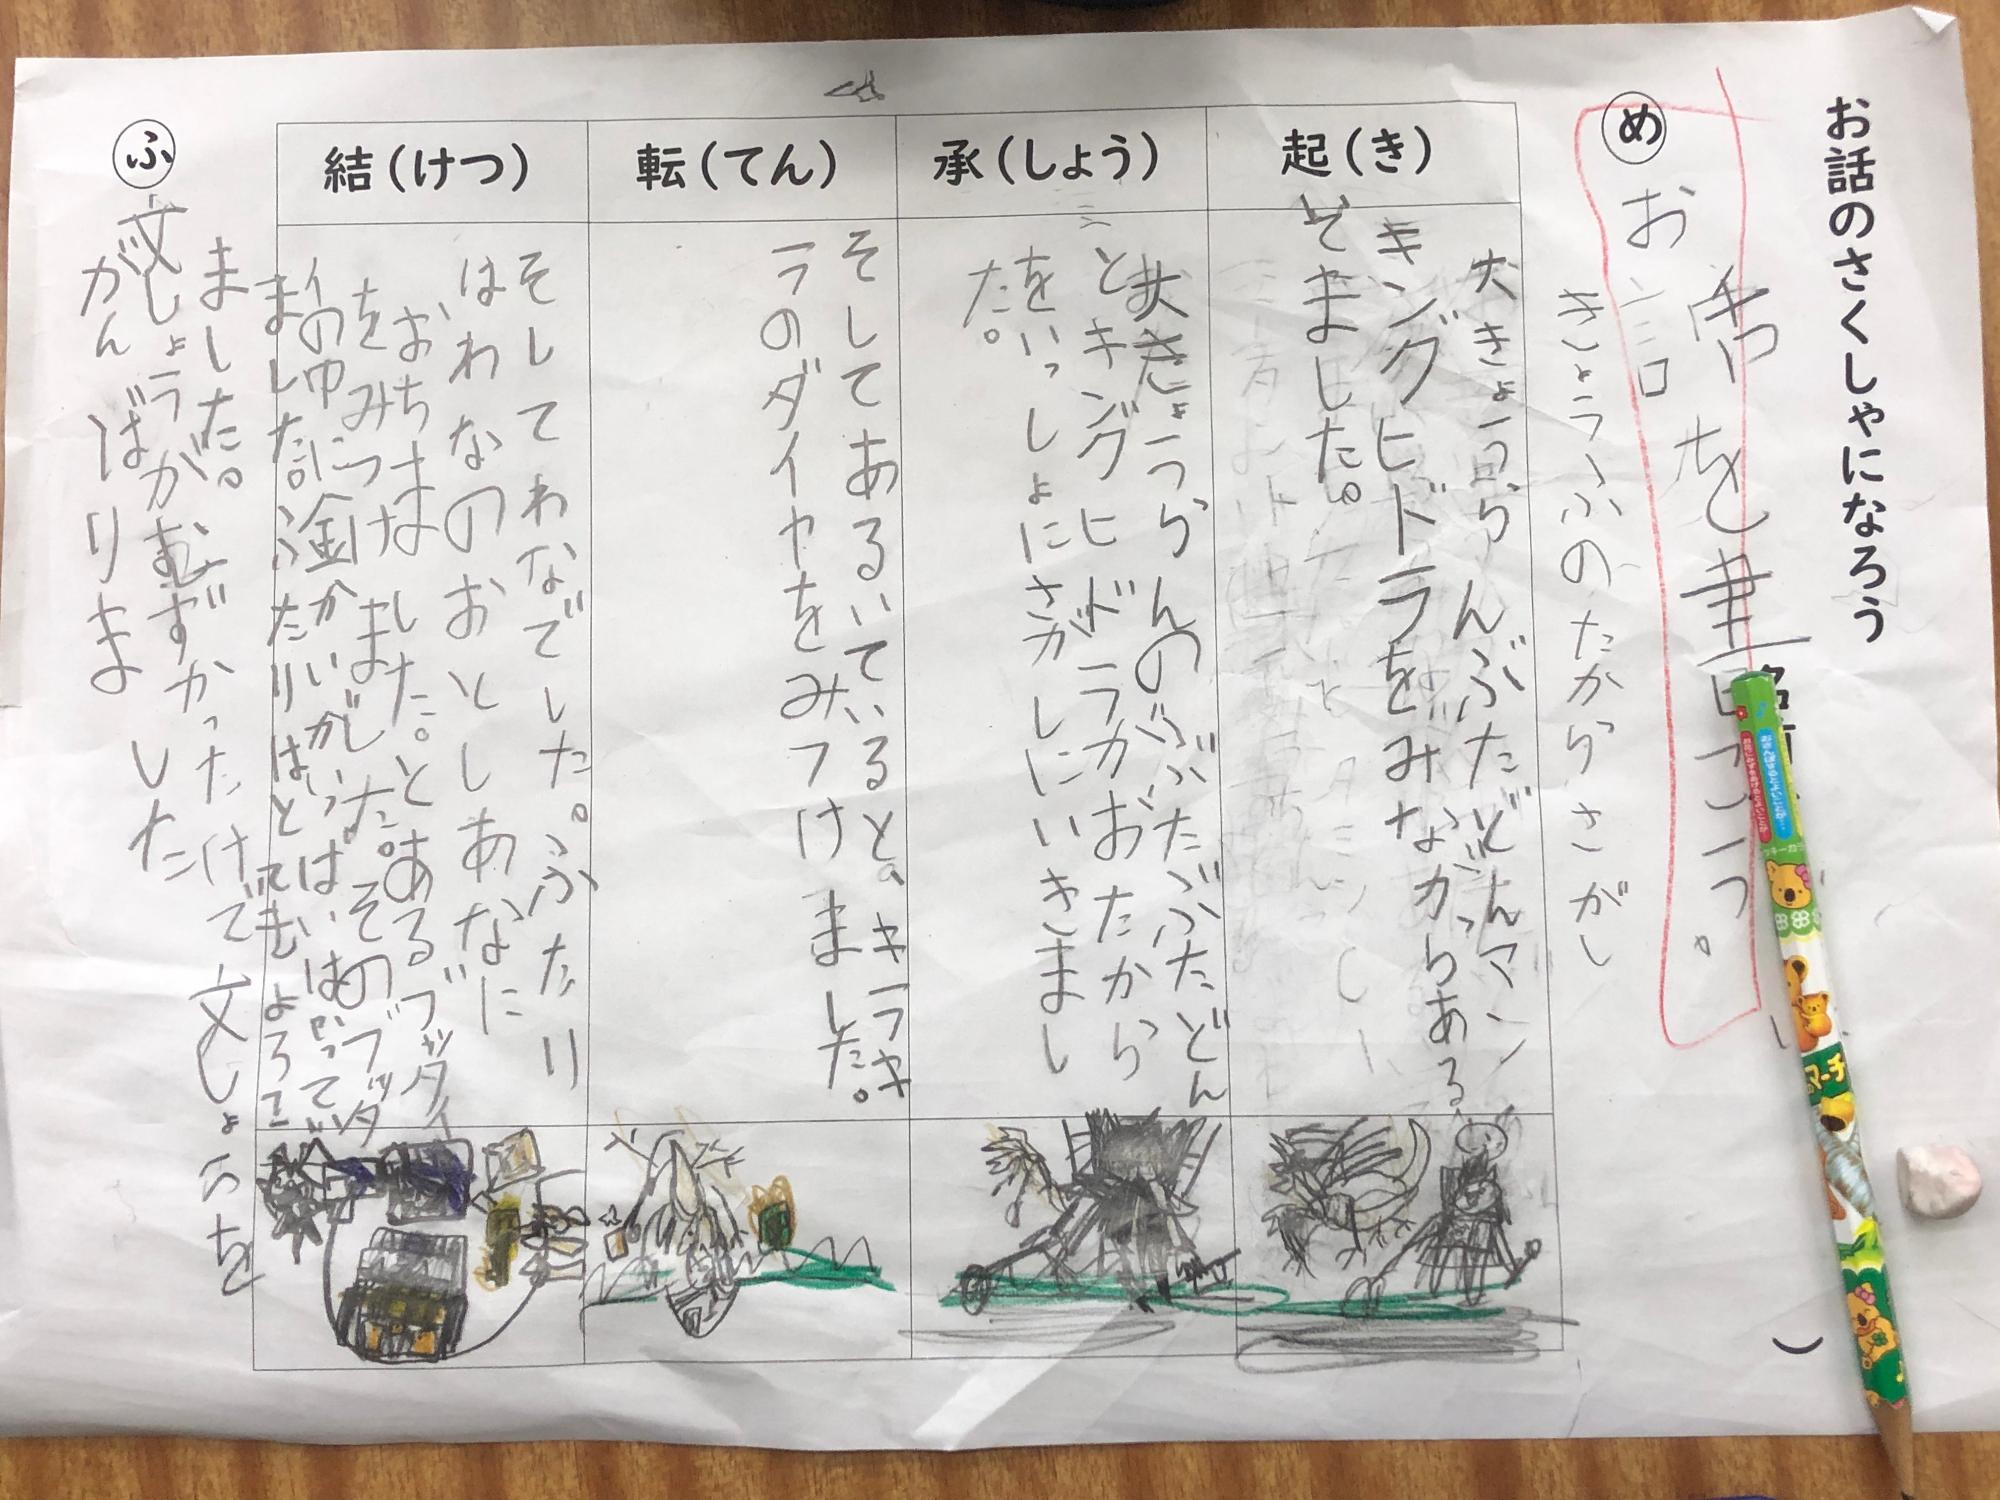 お話のさくしゃになろう
め
お話を書こう。
きょうふのたからさがし
起（き）
大きょうらんぶたどんマン
キングヒドラをみながらある
そました。
承（しょう）
大きょうらんのぶぶたぶたどん
とキングヒドラがおたから
をいっしょにさがしにいきまし
た。
転（てん）
そしてあるいていると。キラキ
ラのダイヤをみつけました。
結（けつ）
そしてわなでした。ふたり
はわなのおとしあなに
おちました。とあるブッダイ
をみつけました。そのブッダ
イの中に金かいがいっぱいはいって
ました。ふたりはとてもよろこ
ました。
ふ
文しょうがむずかったけで文しょうを
がんばりました